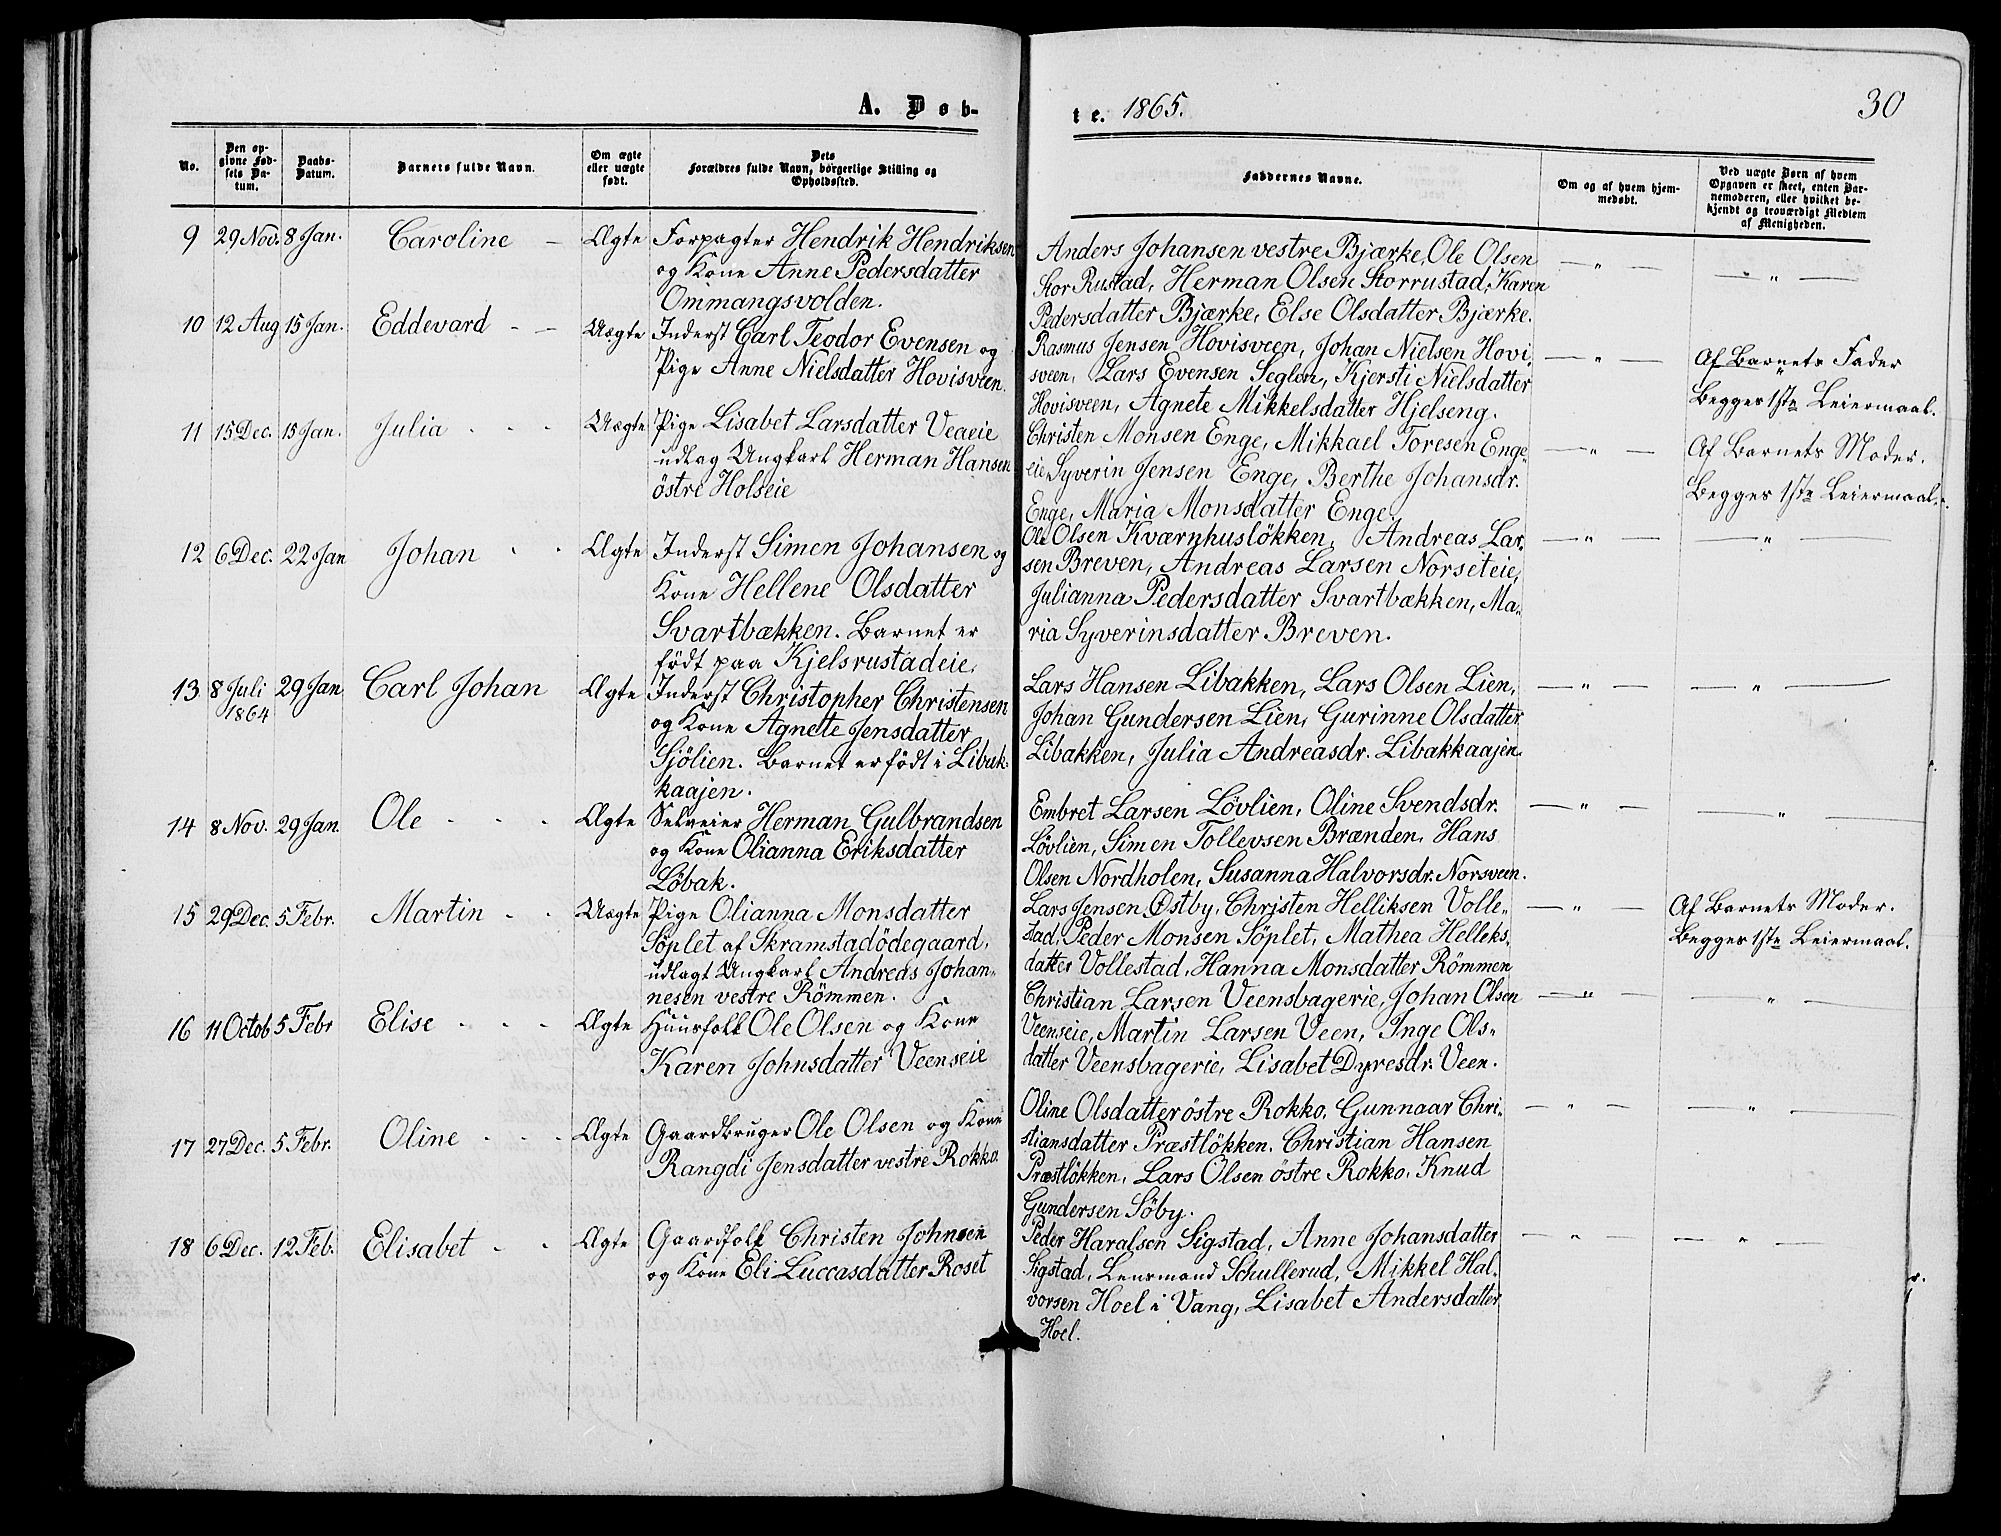 A. Døb-
No.
Den op-
givne Fød-
sels Da-
tum.
Daabs-
Datum.
Barnets fulde Navn.
Om ægte
eller uægte
født.
Dets
Forældres fulde Navn, borgerlige Stilling og
Opholdssted.
9 29 Nov. 8 Jan. Caroline – Ægte Forpagter Hendrik Hendriksen
og Kone Anne Pedersdatter
Ommangsvolden.
10 12 Aug 15 Jan. Eddevard - – Uægte Inderst Carl Teodor Evensen og
Pige Anne Nielsdatter Hovisveen.
11 15 Dec. 15 Jan. Julia - - - Uægte Pige Lisabet Larsdatter Veaeie
udlag Ungkarl Herman Hansen
östre Holseie
12 6 Dec. 22 Jan Johan - - Ægte Inderst Simen Johansen og
Kone Hellene Olsdatter
Svartbækken. Barnet er
födt paa Kjelsrustadeie.
13 8 Juli 29 Jan Carl Johan Ægte Inderst Christopher Christensen
1864
og Kone Agnete Jensdatter
Sjölien. Barnet er födt i Libak-
kaajen.
14 8 Nov. 29 Jan. Ole - - - Ægte Selveier Herman Gulbrandsen
og Kone Olianna Eriksdatter
Löbak.
15 29 Dec. 5 Febr. Martin - - Uægte Pige Olianna Monsdatter
Söplet af Skramstadödegaard,
udlagt Ungkarl Andreas Johan-
nesen vestre Römmen.
16 11 Octob 5 Febr Elise - - - Ægte Huusfolk Ole Olsen og Kone
Karen Johnsdatter Veenseie
17 27 Dec. 5 Febr. Oline - - - Ægte Gaardbruger Ole Olsen og Kone
Rangdi Jensdatter vestre Rokko
18 6 Dec. 12 Feb. Elisabet - - Ægte Gaardfolk Christen Johnsen
og Kone Eli Luccasdatter Roset
te. 1865.
30
Faddernes Navne.
Om og af hvem hjem-
medøbt.
Ved uægte Børn af hvem
Opgaven er skeet, enten Bar-
nemoderen, eller hvilket be-
kjendt og troværdigt Medlem
af Menigheden.
Anders Johansen vestre Bjærke, Ole Olsen
Stor Rustad, Herman Olsen Storrustad, Karen — „ — — „ —
Pedersdatter Bjærke, Else Olsdatter Bjærke.
Rasmus Jensen Hovisveen, Johan Nielsen Hovi- — „ — Af Barnets Fader
sveen, Lars Evensen Seglon, Kjersti Nielsdatter
Hovisveen, Agnete Mikkelsdatter Hjelseng. Begges 1ste Leiermaal.
Christen Monsen Enge, Mikkael Toresen Enge- — „ — Af Barnets Moder.
eie, Syverin Jensen Enge, Berthe Johansdr.
Enge, Maria Monsdatter Enge. Begges 1ste Leiermaal.
Ole Olsen Kværnhuslökken, Andreas Lar- — „ — — „ —
sen Breven, Andreas Larsen Norseteie,
Julianna Pedersdatter Svartbækken, Ma-
ria Syverinsdatter Breven.
Lars Hansen Libakken, Lars Olsen Lien, — „ — — „ —
Johan Gundersen Lien, Gurinne Olsdatter
Libakken, Julia Andreasdr. Libakkaajen.
Embret Larsen Lövlien, Oline Svendsdr. — „ — — „ —
Lövlien, Simen Tollevsen Brænden, Hans
Olsen Nordholen, Susanna Halvorsdr. Norsveen.
Lars Jensen Østby, Christen Helliksen Volle- — „ — Af Barnets Moder.
stad, Peder Monsen Söplet, Mathea Helleks- Begges 1ste Leiermaal.
datter Vollestad, Hanna Monsdatter Römmen
Christian Larsen Veensbagerie, Johan Olsen — „ — — „ —
Veenseie, Martin Larsen Veen, Inge Ols-
datter Veensbagerie, Lisabet Dyresdr. Veen.
Oline Olsdatter östre Rokko, Gunnaar Chri- — „ — — „ —
stiansdatter Præstlökken, Christian Hansen
Præstlökken, Lars Olsen östre Rokko, Knud
Gundersen Söby.
Peder Haralsen Sigstad, Anne Johansdatter — „ — — „ —
Sigstad, Lensmand Schullerud, Mikkel Hal-
vorsen Hoel i Vang, Lisabet Andersdatter
Hoel.